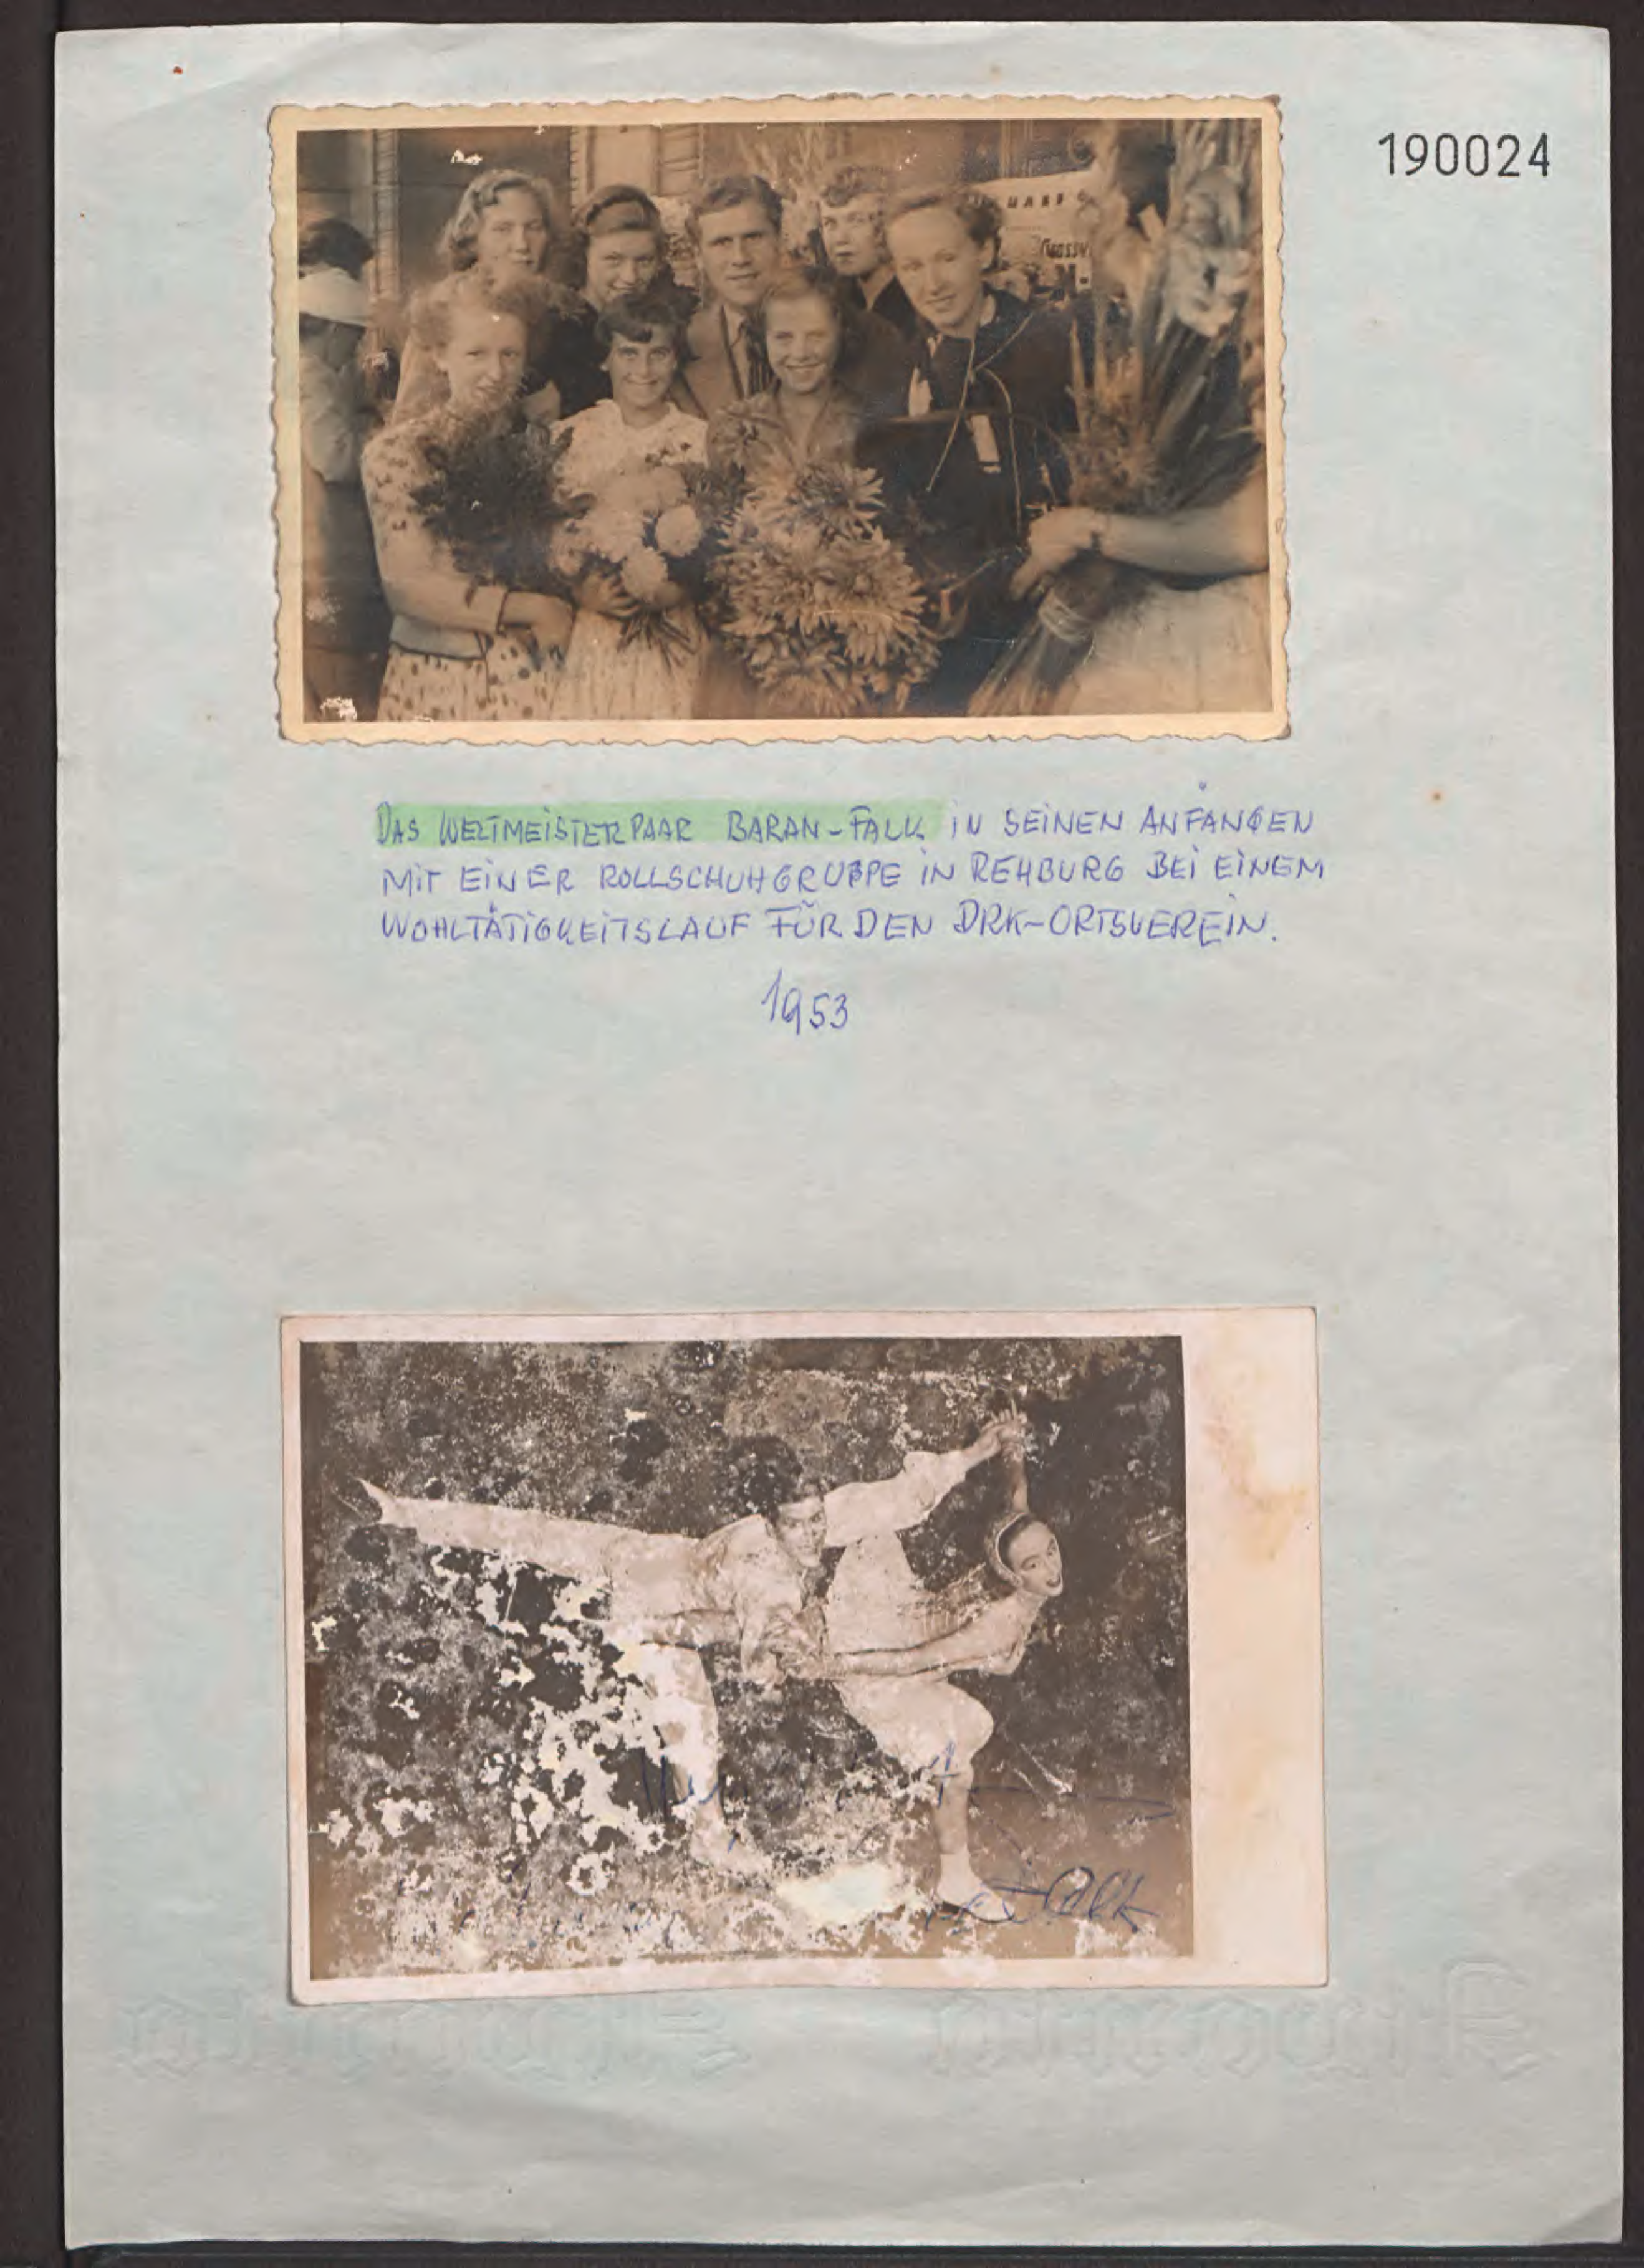 190024
DAS WELTMEISTERPAAR BARAN-FALK IN SEINEN ANFÄNGEN
MIT EINER ROLLSCHUHGRUPPE IN REHBURG BEI EINEM
WOHLTÄTIGKEITSLAUF FÜR DEN DRK-ORTSVEREIN.
1953
Falk